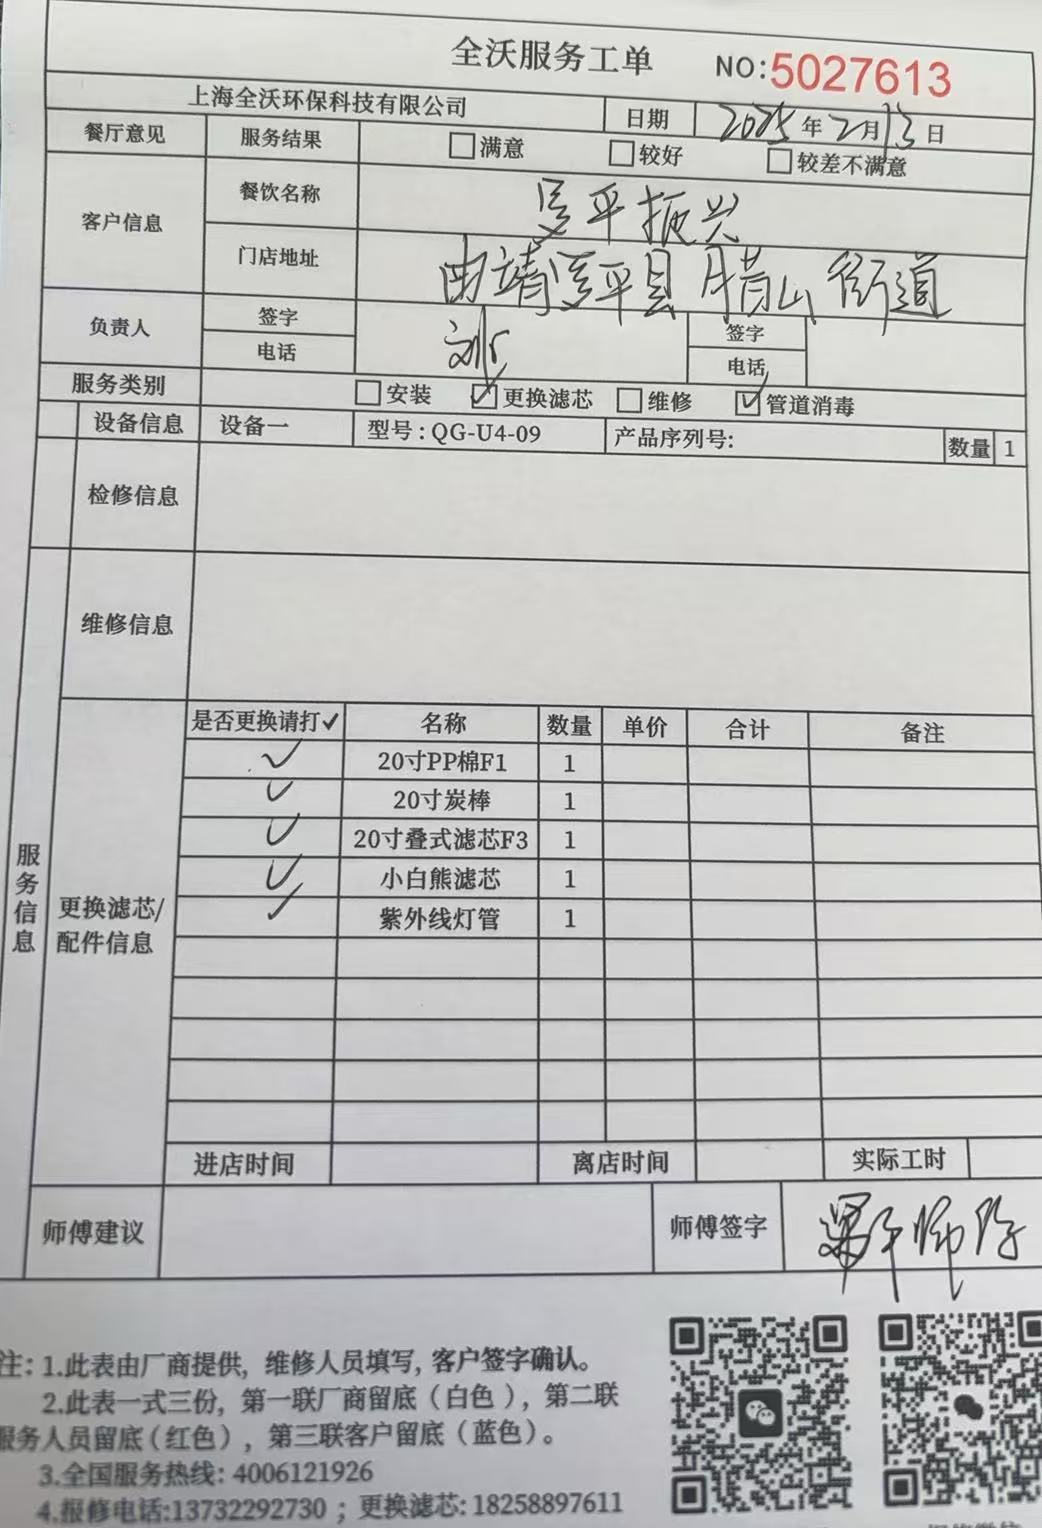 全沃服务工单 NO:5027613
上海全沃环保科技有限公司 日期 2025年2月13日
餐厅意见 服务结果 □满意 □较好 □较差不满意
客户信息 餐饮名称 罗平振兴
门店地址 曲靖罗平县腊山街道
负责人 签字 签字
电话 电话
服务类别 □安装 ☑更换滤芯 □维修 ☑管道消毒
设备信息 设备一 型号:QG-U4-09 产品序列号: 数量 1
检修信息
维修信息
服务信息
更换滤芯/
配件信息
是否更换请打✓ 名称 数量 单价 合计 备注
✓ 20寸PP棉F1 1
✓ 20寸炭棒 1
✓ 20寸叠式滤芯F3 1
✓ 小白熊滤芯 1
✓ 紫外线灯管 1
进店时间 离店时间 实际工时
师傅建议 师傅签字 师傅
注:1.此表由厂商提供,维修人员填写,客户签字确认。
2.此表一式三份,第一联厂商留底(白色),第二联
服务人员留底(红色),第三联客户留底(蓝色)。
3.全国服务热线: 4006121926
4.报修电话:13732292730 ; 更换滤芯: 18258897611